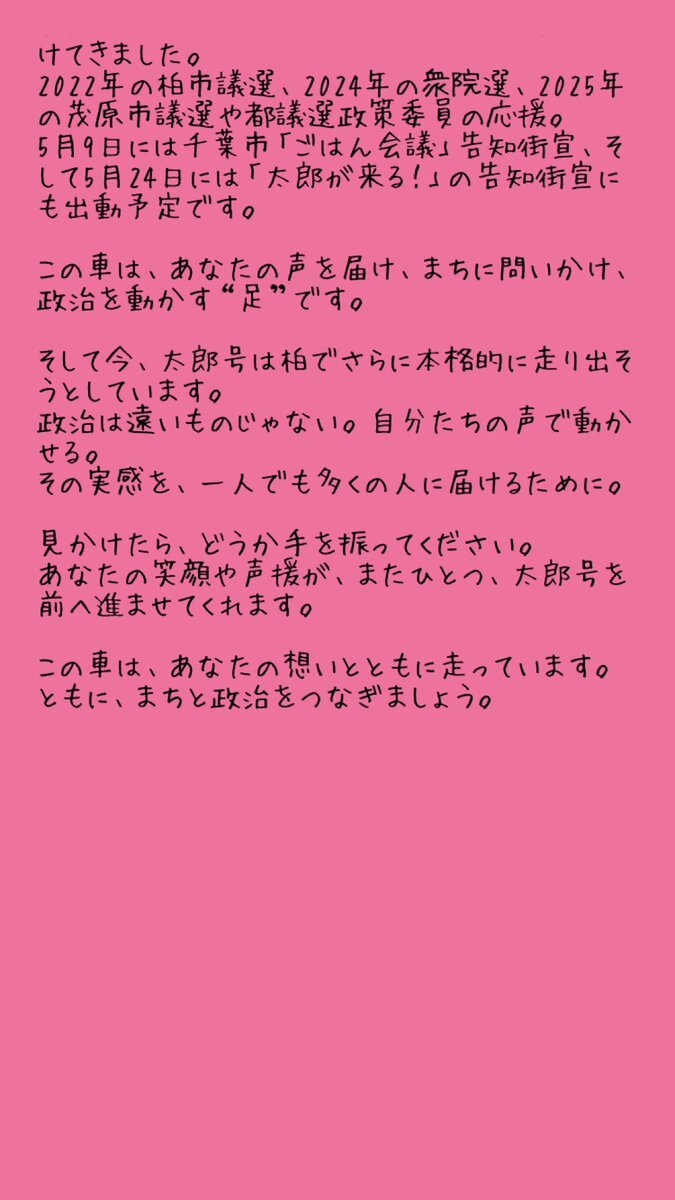 けてきました。
2022年の柏市議選、2024年の衆院選、2025年
の茂原市議選や都議選政策委員の応援。
5月9日には千葉市「ごはん会議」告知街宣、そ
して5月24日には「太郎が来る！」の告知街宣に
も出動予定です。
この車は、あなたの声を届け、まちに問いかけ、
政治を動かす“足”です。
そして今、太郎号は柏でさらに本格的に走り出そ
うとしています。
政治は遠いものじゃない。自分たちの声で動か
せる。
その実感を、一人でも多くの人に届けるために。
見かけたら、どうか手を振ってください。
あなたの笑顔や声援が、またひとつ、太郎号を
前へ進ませてくれます。
この車は、あなたの想いとともに走っています。
ともに、まちと政治をつなぎましょう。